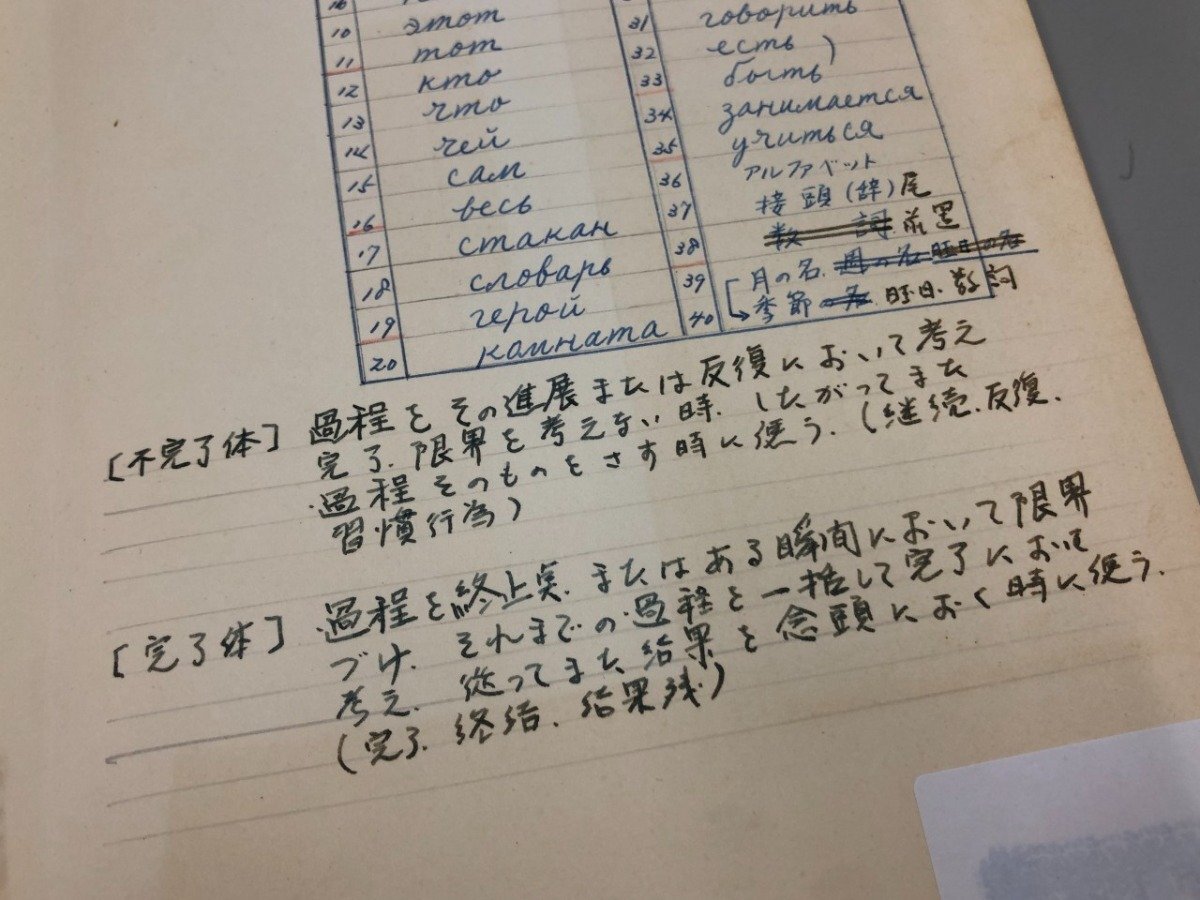 10 этот
11 тот
12 кто
13 что
14 чей
15 сам
16 весь
17 стакан
18 словарь
19 герой
20 комната
31 говорить
32 есть )
33 быть
34 занимается
35 учиться
36 アルファベット
37 接頭(辞)尾
38 数詞 前置
39 月の名. 週の名 曜日の名
40 季節 名 曜日. 数詞
[不完了体] 過程をその進展または反復において考え
完了. 限界を考えない時. したがってまた
過程そのものをさす時に使う. (継続. 反復.
習慣行為)
[完了体] 過程を終止点. またはある瞬間において限界
づけ. それまでの過程を一括して完了において
考え. 従ってまた結果を念頭におく時に使う.
(完了. 終結. 結果残)